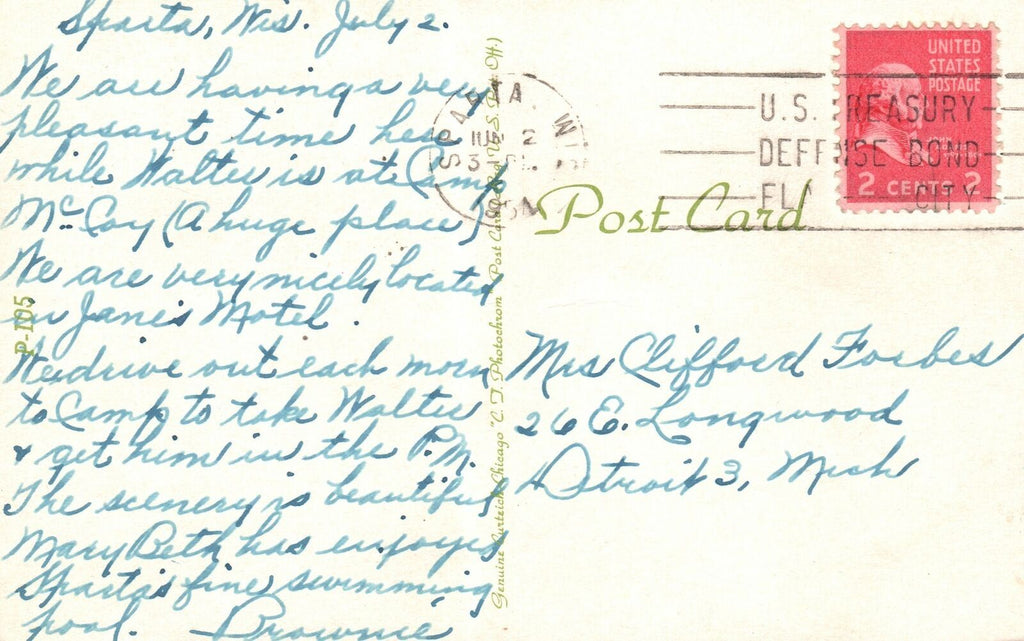 Sparta, Wis. July 2.
We are having a very
pleasant time here
while Walter is at Camp
McCoy (A huge place)
We are very nicely located
in Janes Motel.
We drive out each morn
to Camp to take Walter
& get him in the P.M.
The scenery is beautiful
Mary Beth has enjoyed
Sparta's fine swimming
pool. Brownie
P-105
Genuine Curteich-Chicago "C. T. Photochrom" Post Card
SPARTA WIS
2
UNITED
STATES
POSTAGE
2 CENTS 2
U.S. TREASURY
DEFENSE BOND
CITY
Post Card
Mrs Clifford Forbes
26 E. Longwood
Detroit 3, Mich